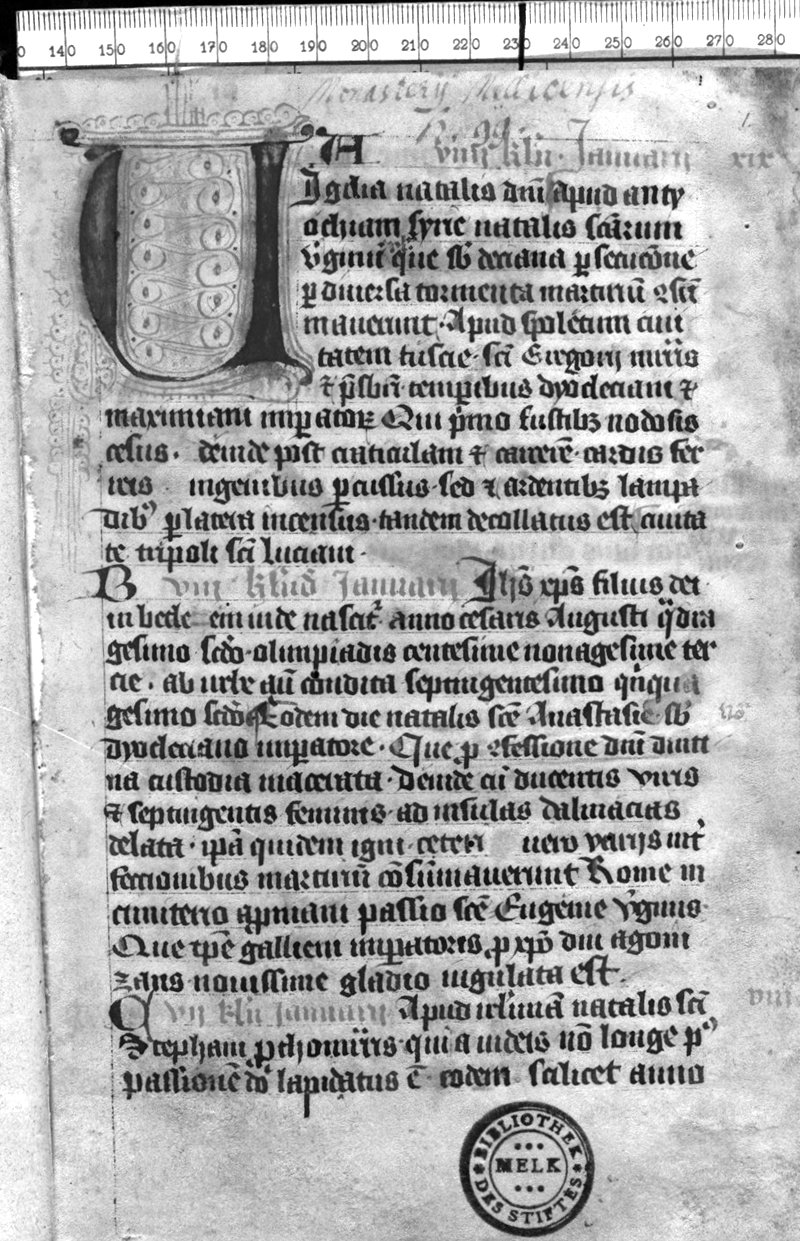 140 150 160 170 180 190 200 210 220 230 240 250 260 270 280
Monasterij Mellicensis
A viiij kłn Januarij xix
Vigilia natalis dn̄i Apud anty
ochiam syrie natalis sc̄arum
v̓ginū que sb̄ deciana ꝑsecucōne
ꝑ diuersa tormenta martiriū ꝯsū
mauerunt · Apud spoletum ciui
tatem tuscie · sc̄i Gregorij mr̄is
⁊ pr̄sbr̄i temꝑibus dyocleciani ⁊
maximiani imꝑatoꝝ Qui p̄mo fustibꝫ nodosis
cesus · deinde post craticulam ⁊ carcerē · cardis fer
reis ingenibus ꝑcussus · sed ⁊ ardentibꝫ lampa
dibꝰ ꝑ latera incensus · tandem decollatus est ciuita
te tripoli sc̄i luciani ·
B viij kłn̄ Januarij Jhō xp̄s filius dei
in bethleem iude nascit̄ anno cesaris Augusti qͣdra
gesimo sc̄do · olimpiadis centesime nonagesime ter
cie · ab urbe aū condita septingentesimo qͥnqua
gesimo sc̄do Eodem die natalis sc̄e Anastasie · sb̄
dyocleciano imꝑatore · Que ꝓ ꝯfessione dn̄i diuti
na custodia macerata · Deinde cū ducentis viris
⁊ septingentis feminis · ad insulas dalmacias
delata · ip̄a quidem igni · ceteri uero varijs int̄
fectionibus martiriū cōsūmauerunt Rome in
cimiterio apͬniani passio sc̄e Eugenie v̓ginis
Que tp̄e gallieni imꝑatoris ꝓ xp̄o diu agoni
zans nouissime gladio iugulata est ·
C vij kłn Januarij Apud irlīmā natalis sc̄i
Stephani ꝓthomr̄iris · qui a iudeis nō longe pꝰ
passionē dn̄i lapidatus ē · eodem scilicet anno
viij
BIBLIOTHEK
MELK
DES STIFTES